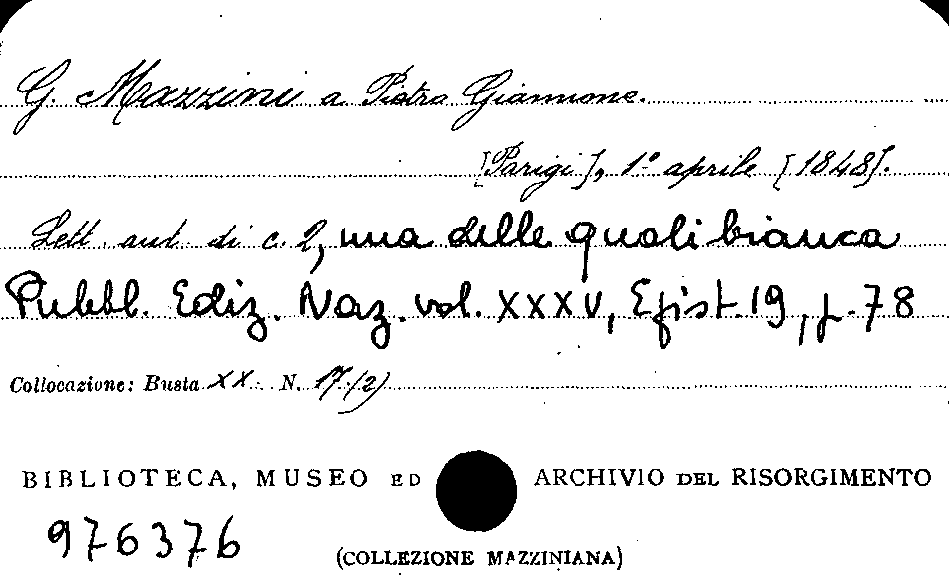 G. Mazzini a Pietro Giannone.
[Parigi], 1° aprile [1848].
Lett. aut. di c. 2, una delle quali bianca
Pubbl. Ediz. Naz. vol. XXXV, Epist. 19, p. 78
Collocazione: Busta XX N. 17 (2)
BIBLIOTECA, MUSEO ED ARCHIVIO DEL RISORGIMENTO
976376
(COLLEZIONE MAZZINIANA)